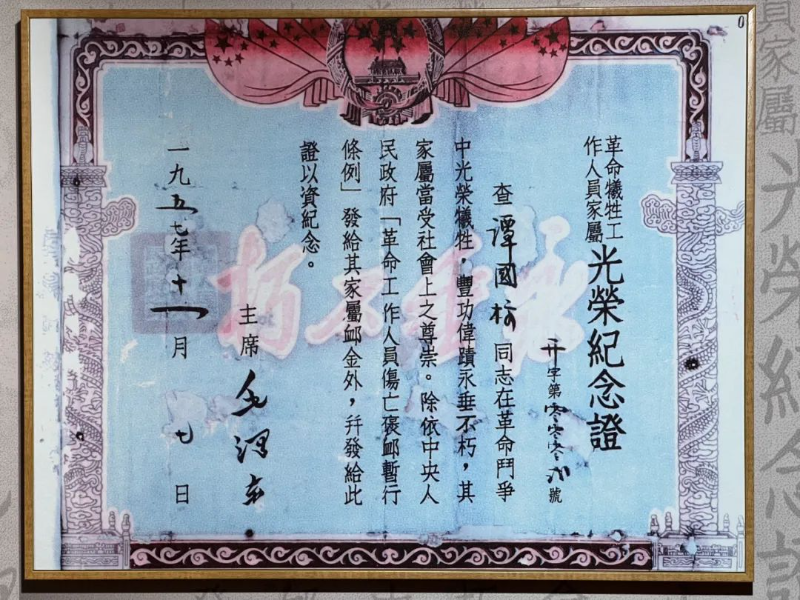 革命犧牲工
作人員家屬
光榮紀念證
字第零零零號
查譚國同志在革命鬥爭
中光榮犧牲，豐功偉蹟永垂不朽，其
家屬當受社會上之尊崇。除依中央人
民政府「革命工作人員傷亡褒卹暫行
條例」發給其家屬卹金外，幷發給此
證以資紀念。
主席 毛澤東
一九五七年十一月七日
永垂不朽
員家屬
光榮紀念證